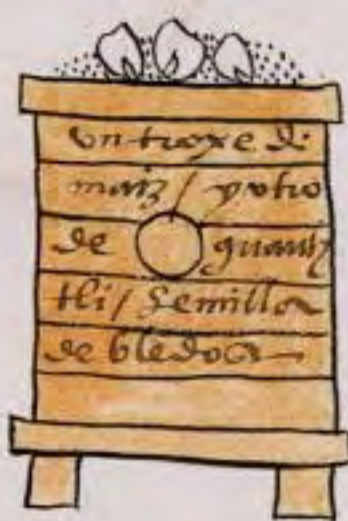 un troxe de
maiz / y otro
de guauh
tli / semilla
de bledos